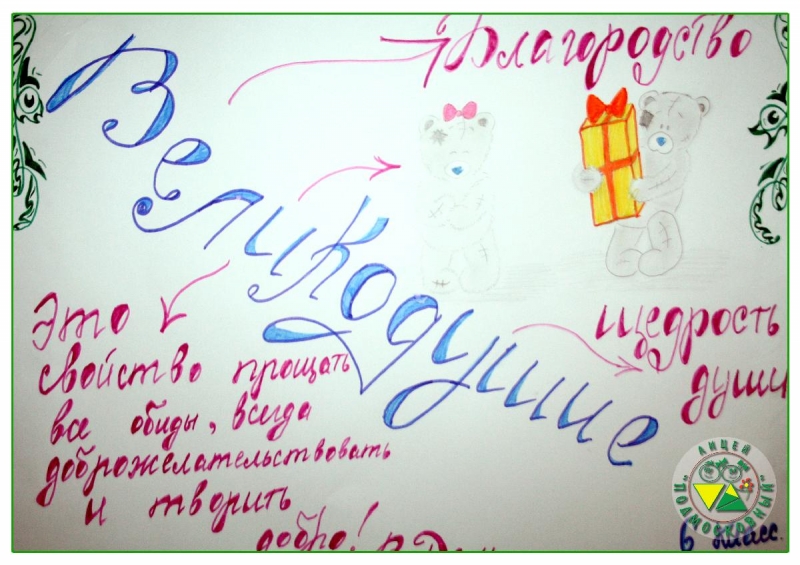 Благородство
Великодушие
Это
свойство прощать
все обиды, всегда
доброжелательствовать
и творить
добро!
щедрость
души
6 класс.
ЛИЦЕЙ
"ПОДМОСКОВНЫЙ"